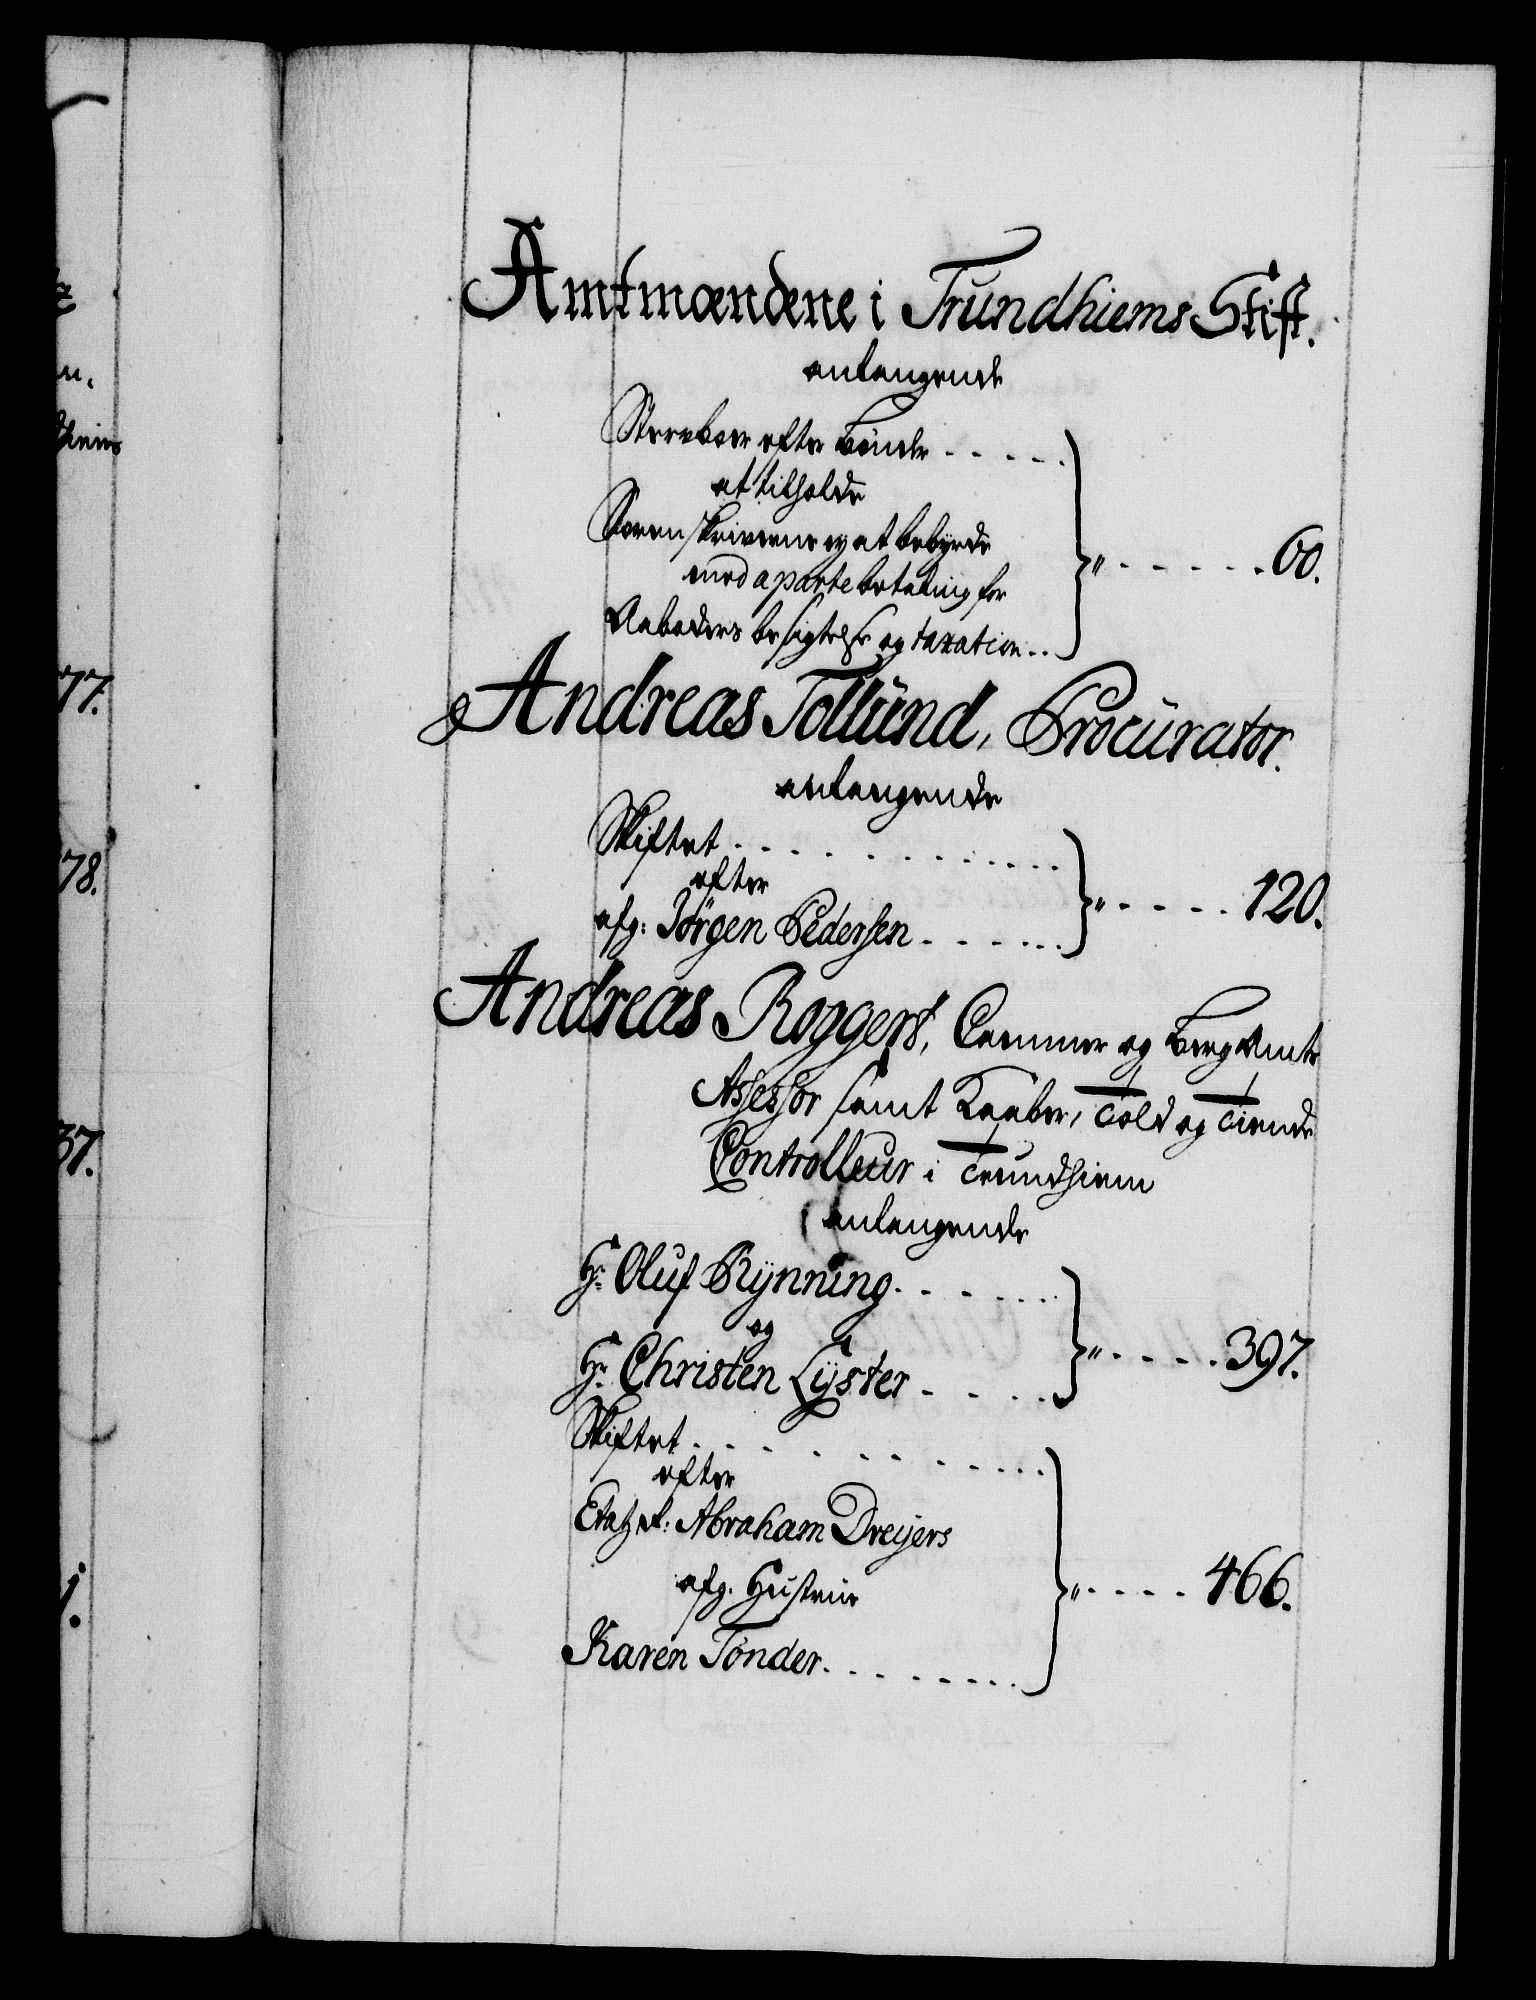 Amtmændene i Trundhiems Stift.
anlangende
Sterboer efter Bönder . . . . .
at tilholde
Sorenskriverne ey at bebyrde
med aparte betaling for
Aaboders besigtelse og taxation . .
" . . . . . . 60.
Andreas Tollund, Procurator.
anlangende
Skiftet . . . . . . . . . .
efter
afg: Jörgen Pedersen . . . . . .
" . . . . . 120.
Andreas Roggert, Cammer og Berg Amts
Assessor samt Kaaber, Told og Tiende
Controlleur i Trundhiem
anlangende
Hr. Oluf Rynning . . . . . .
og
Hr. Christen Lyster . . . . .
" . . . . . 397.
Skiftet . . . . . . . . . .
efter
Etatz R: Abraham Dreyers
afg. Hustrue
Karen Tönder . . . . . . . .
" . . . . . 466.
77.
78.
37.